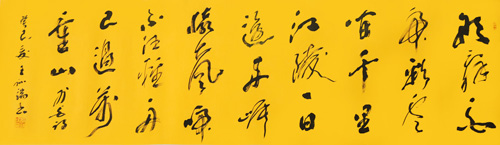 朝辞白
帝彩云
间千里
江陵一日
还两岸
猿声啼
不住轻舟
已过万
重山 李白诗
癸巳夏王